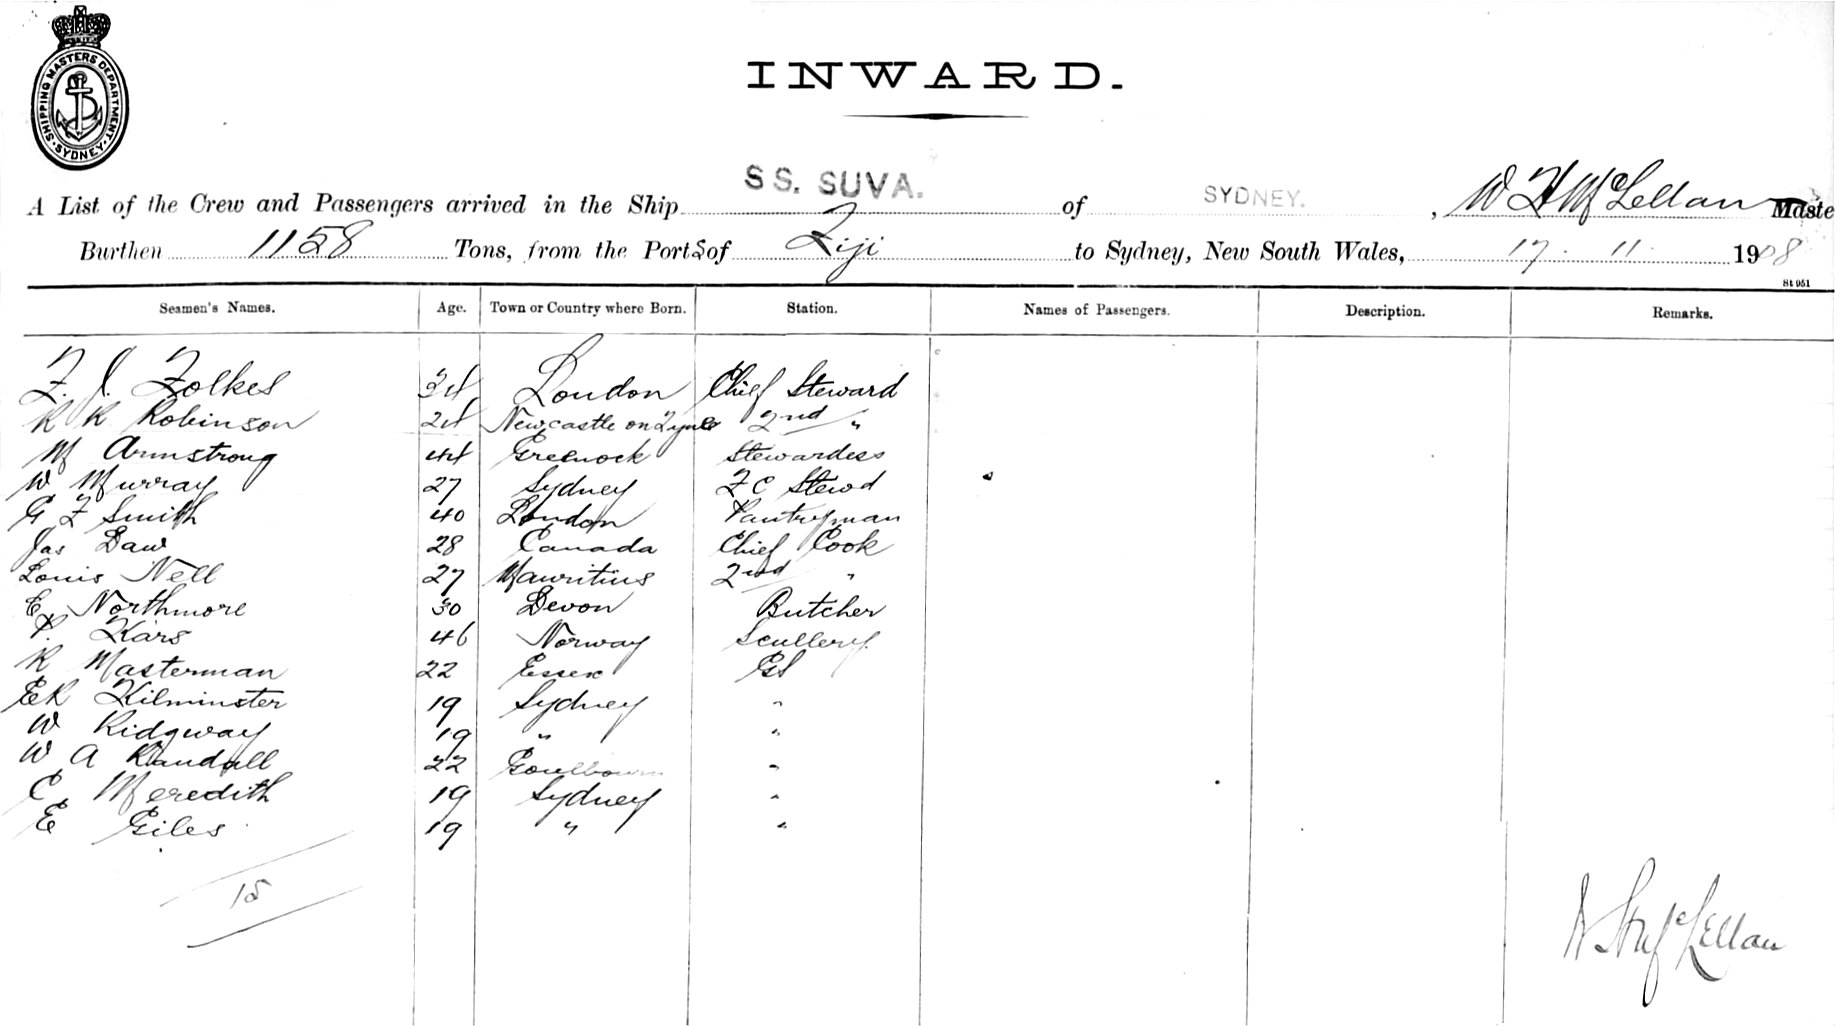 SHIPPING MASTERS DEPARTMENT. SYDNEY.
INWARD.
A List of the Crew and Passengers arrived in the Ship SS. SUVA. of SYDNEY. , W H McLellan Maste
Burthen 1158 Tons, from the Ports of Fiji to Sydney, New South Wales, 17. 11. 1908
St 951
Seamen's Names. Age. Town or Country where Born. Station. Names of Passengers. Description. Remarks.
F. J. Folkes 34 London Chief Steward
R R Robinson 24 Newcastle on Tyne 2nd "
M Armstrong 44 Greenock Stewardess
W Murray 27 Sydney F C Stewd
G F Smith 40 London Pantryman
Jas Daw 28 Canada Chief Cook
Louis Nell 27 Mauritius 2nd "
E Northmore 30 Devon Butcher
P. Kars 46 Norway Scullery.
R Masterman 22 Essex GS
ER Kilminster 19 Sydney "
W Ridgway 19 " "
W A Randall 22 Goulbourn "
C Meredith 19 Sydney "
E Giles 19 " "
15
McLellan